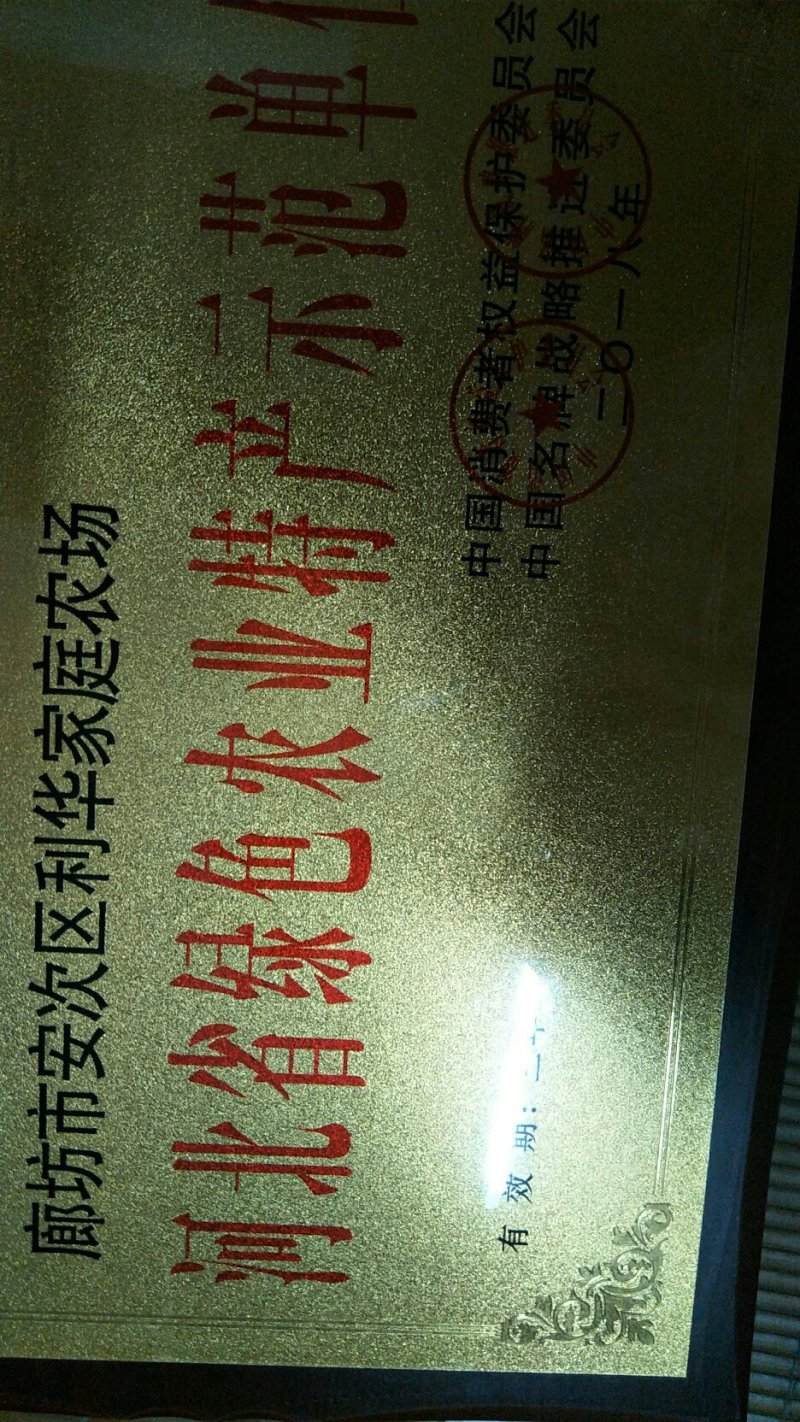 廊坊市安次区利华家庭农场
河北省绿色农业特产示范单位
中国消费者权益保护委员会
中国名牌战略推进委员会
二〇一八年
有效期：三年